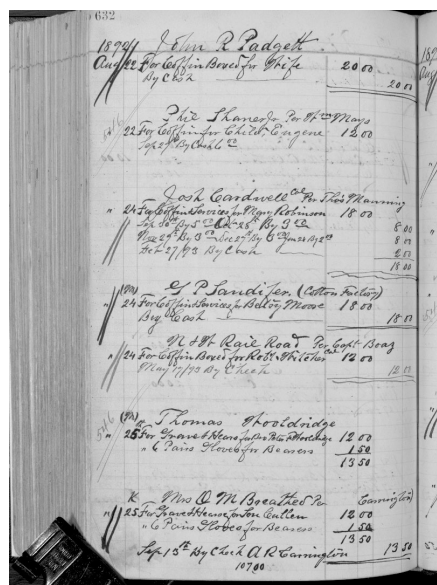 632
1892 John R Padgett
Aug 22 For Coffin Boxed for Wife 20 00
By Cash 20 00
Phie Shaner Per Wm Mays
22 For Coffin for Child Eugene 12 00
Sep 29 By Cash 6 00
Josh Cardwell Col Per Thos Manning
" 24 For Coffin & Services for Mary Robinson 18 00
Sep 30 By 5 00 Oct 28 By 3 00 8 00
Nov 29 By 3 00 Dec 27 By 3 00 Jan 28 By 2 00 8 00
Oct 27/93 By Cash 2 00
18 00
G P Sandifer (Cotton Factory)
" 24 For Coffin & Services for Betty Moore 18 00
By Cash 18 00
N & W Rail Road Per Capt Boaz
" 24 For Coffin Boxed for Robt Col 12 00
May 17/93 By Check 12 00
546
Thomas Wooldridge
" 25 For Grave & Hearse for Peter Wooldridge 12 00
" 6 Pairs Gloves for Bearers 1 50
13 50
Mrs O M Breathed Per Carrington
" 25 For Grave & Hearse for Jon Cullen 12 00
" 6 Pairs Gloves for Bearers 1 50
13 50
Sep 13th By Check A R Carrington 13 50
107 00